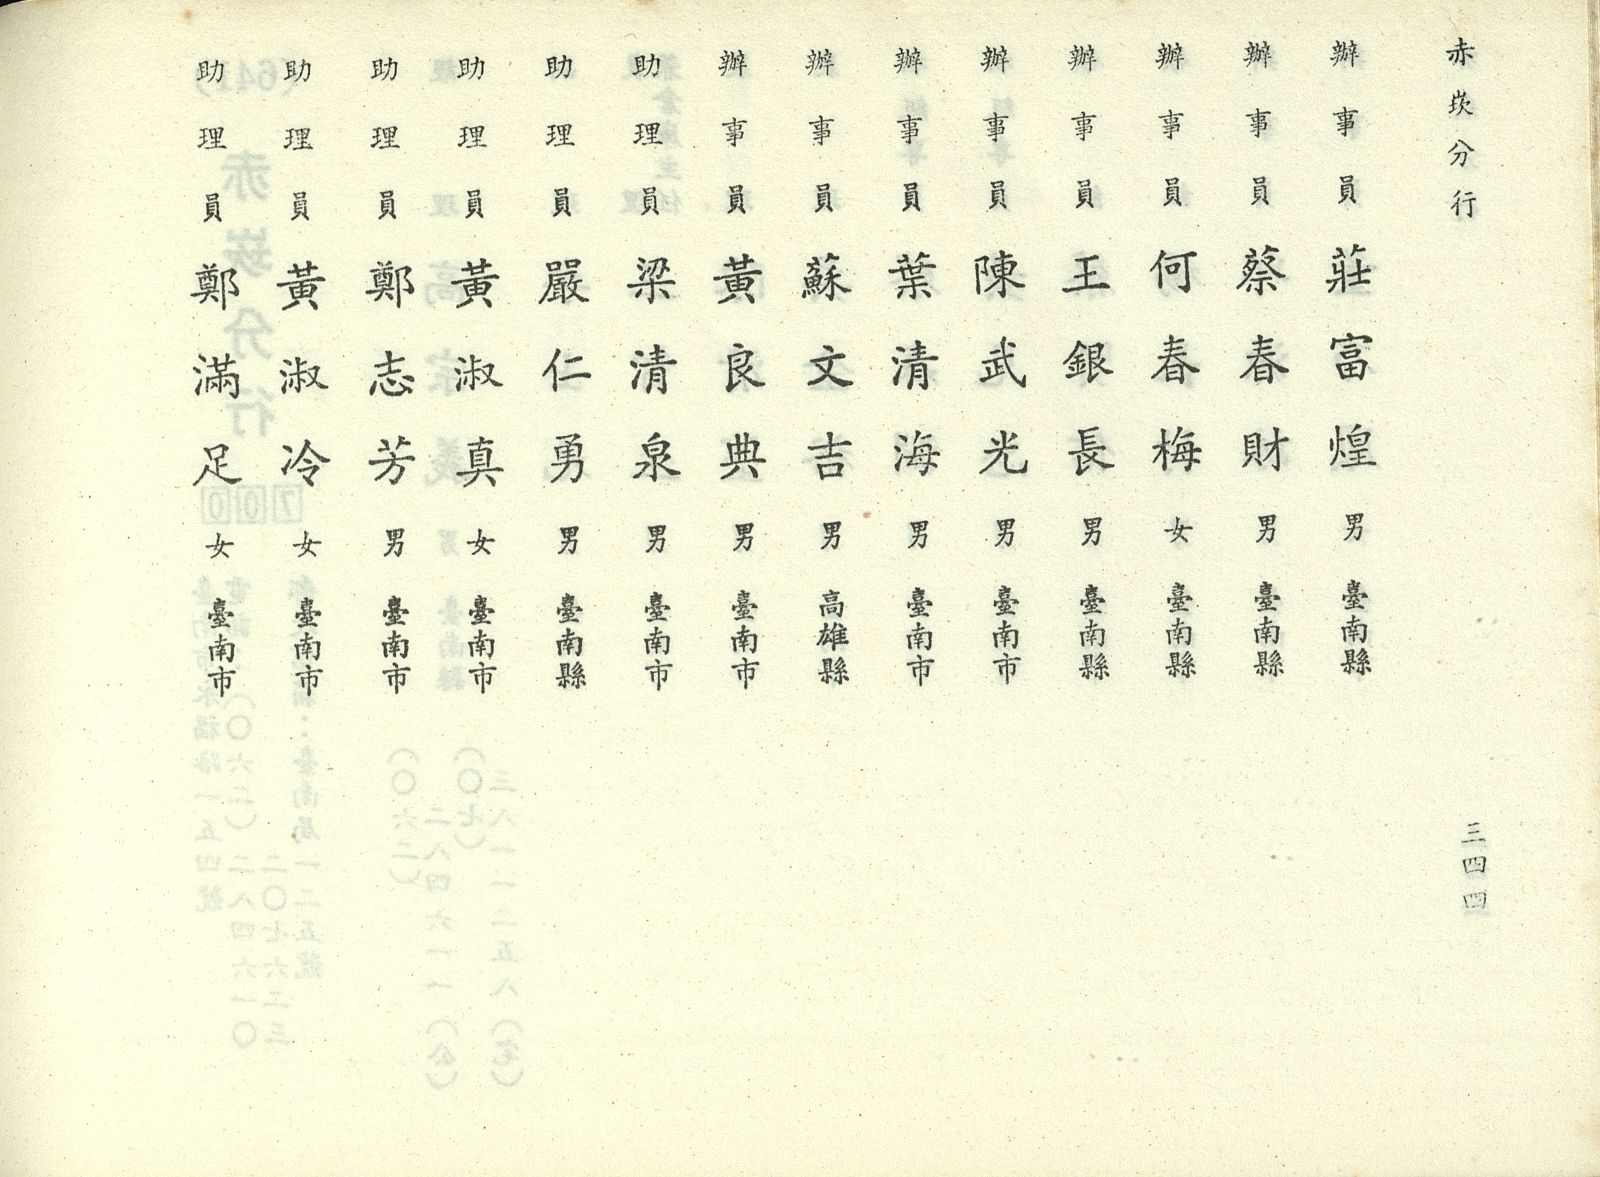 赤崁分行
三四四
辦事員莊富煌男臺南縣
辦事員蔡春財男臺南縣
辦事員何春梅女臺南縣
辦事員王銀長男臺南縣
辦事員陳武光男臺南市
辦事員葉清海男臺南市
辦事員蘇文吉男高雄縣
辦事員黃良典男臺南市
助理員梁清泉男臺南市
助理員嚴仁勇男臺南縣
助理員黃淑真女臺南市
助理員鄭志芳男臺南市
助理員黃淑冷女臺南市
助理員鄭滿足女臺南市